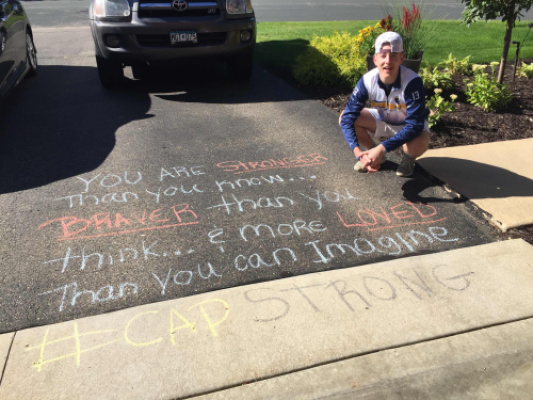 YOU ARE STRONGER
Than you know...
BRAVER than you
think... & more LOVED
Than you can Imagine
#CAPSTRONG
13